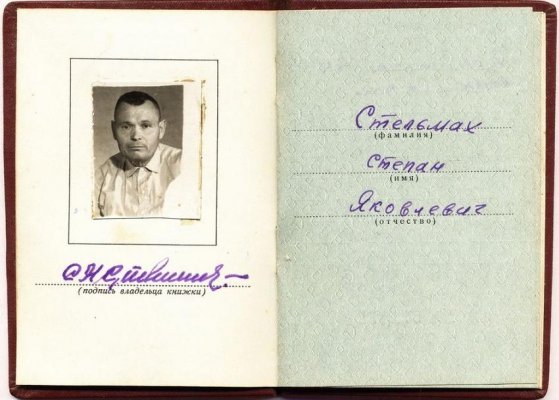 (подпись владельца книжки)
Стельмах
(фамилия)
Степан
(имя)
Яковлевич
(отчество)